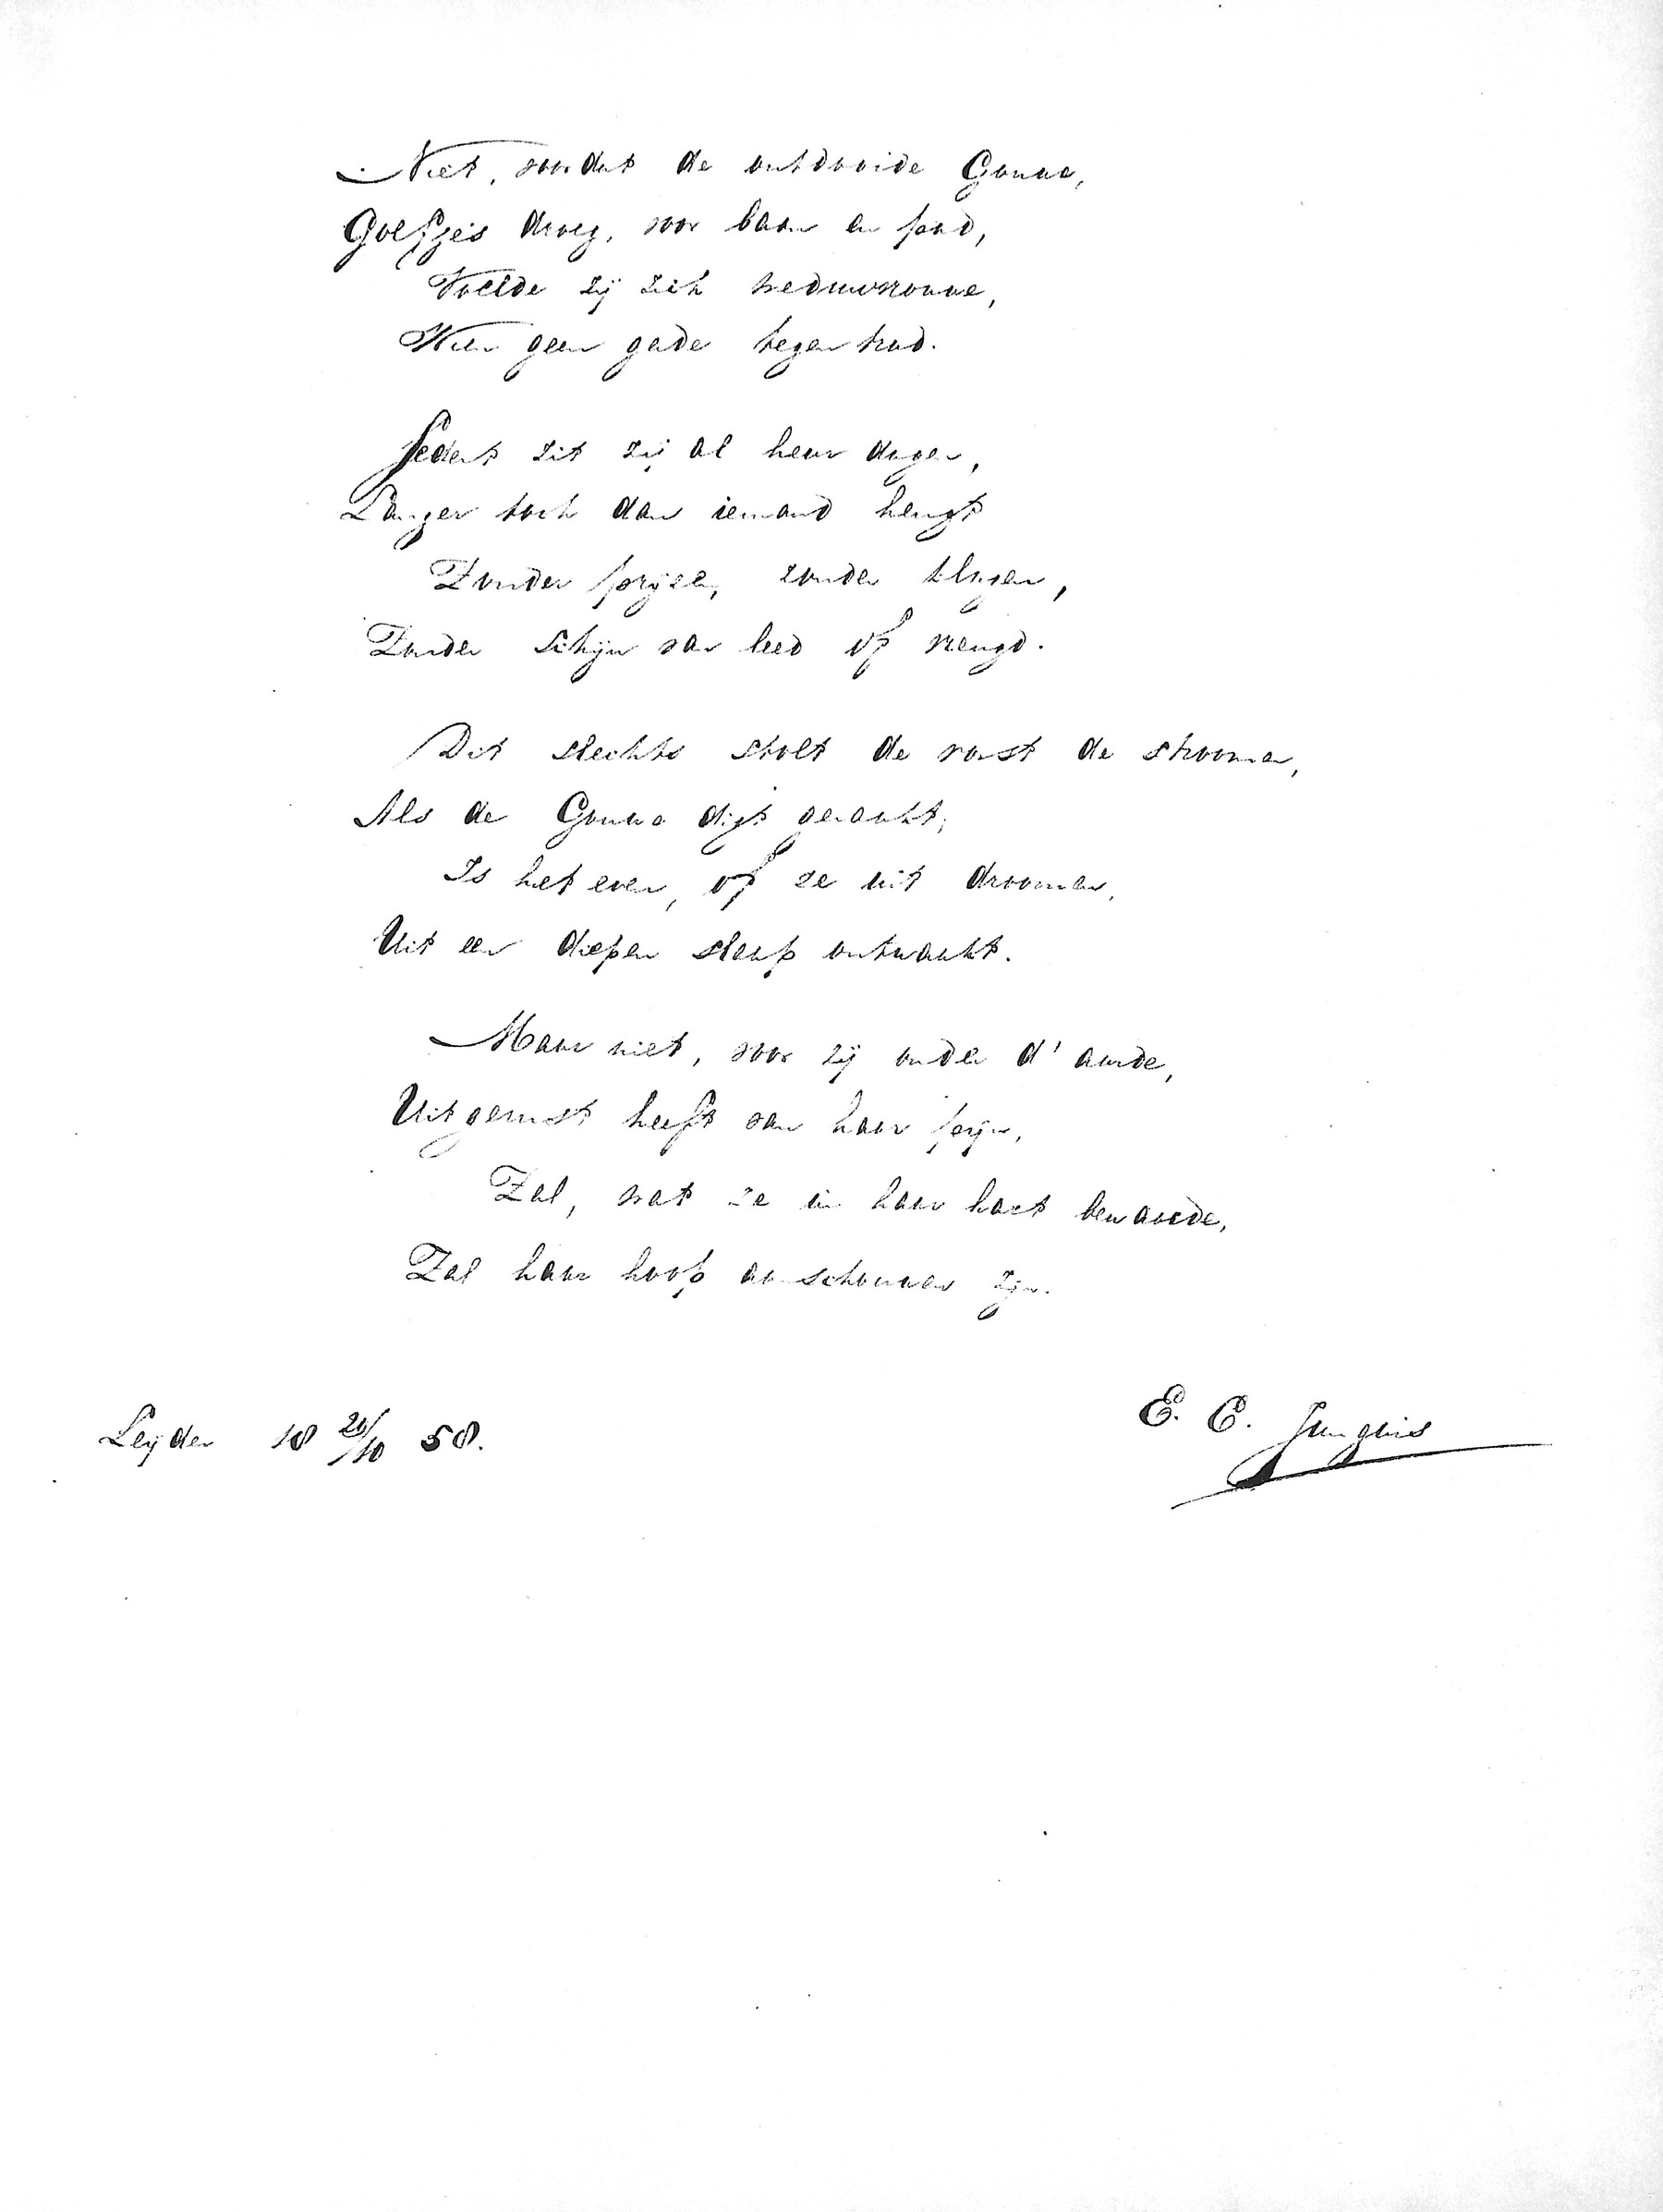 Niet, voordat de ontdooide Gouwe,
Golfjes droeg, voor baan en pad,
Voelde zij zich weduwvrouwe,
Wien geen gade tegentrad.
Sedert zit zij al heur dagen,
Langer toch dan iemand heugt
Zonder prijzen, zonder klagen,
Zonder schijn van leed of vreugd.
Dit slechts stolt de vorst de stroomen,
Als de Gouwe digt geraakt,
Is het even, of ze uit droomen,
Uit een diepen slaap ontwaakt.
Maar niet, voor zij onder d' aarde,
Uitgerust heeft van haar pijn,
Zal, wat ze in haar hart bewaarde,
Zal haar hoop aanschouwen zijn.
Leyden 18 20/10 58.
E. C. Jungius